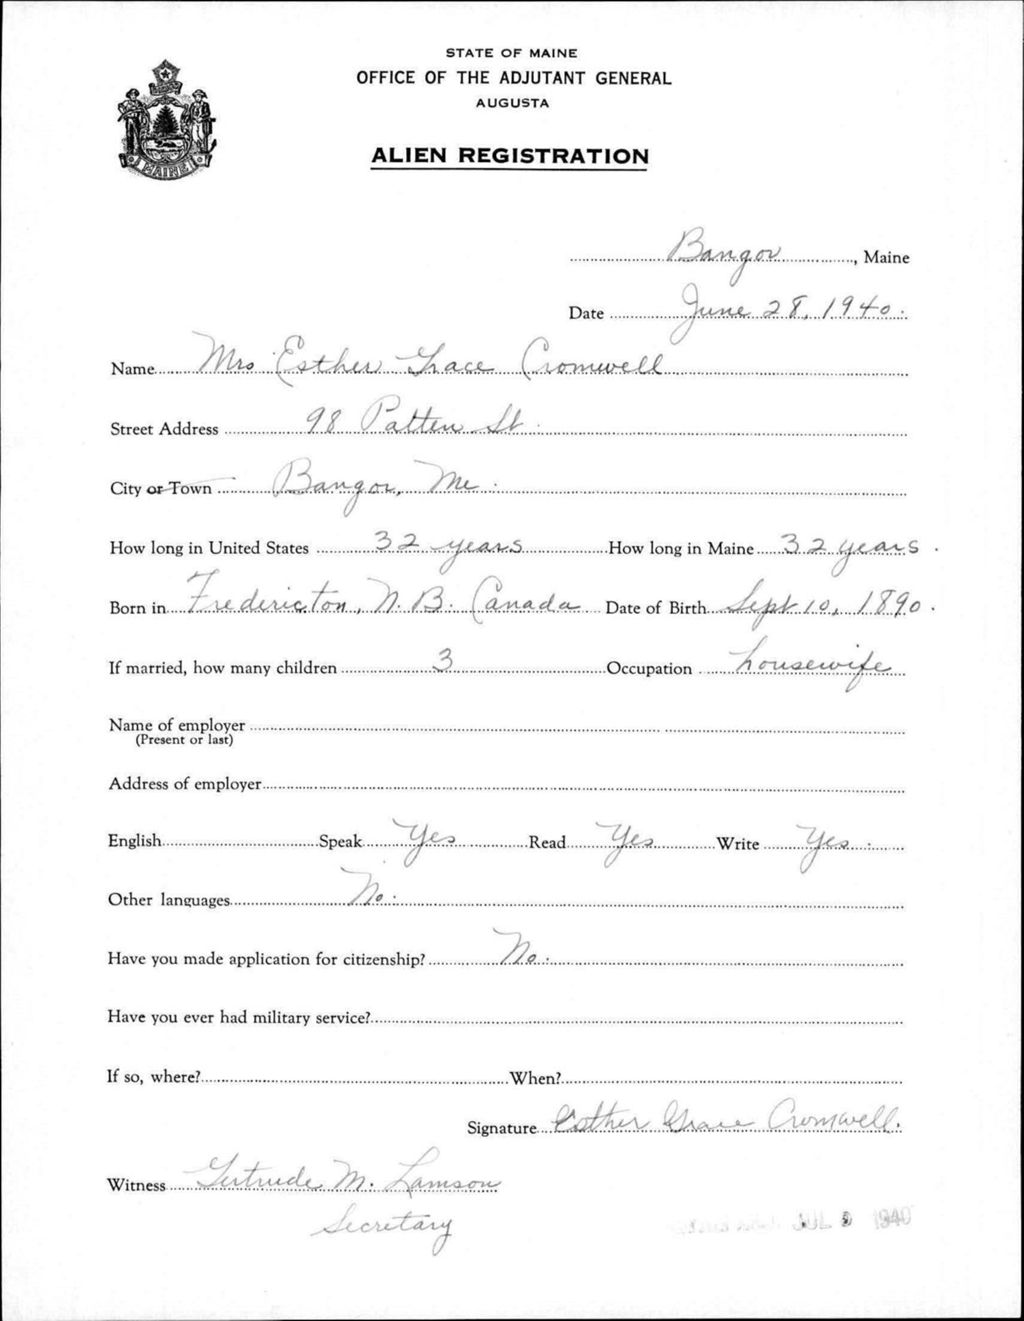 STATE OF MAINE
OFFICE OF THE ADJUTANT GENERAL
AUGUSTA
ALIEN REGISTRATION
MAINE
Bangor, Maine
Date June 28, 1940.
Name Mrs Esther Grace Cromwell
Street Address 98 Patten St.
City or Town Bangor, Me.
How long in United States 32 years How long in Maine 32 years.
Born in Fredericton, N.B. Canada Date of Birth Sept 10, 1890.
If married, how many children 3 Occupation housewife
Name of employer
(Present or last)
Address of employer
English Speak Yes Read Yes Write Yes.
Other languages No.
Have you made application for citizenship? No.
Have you ever had military service?
If so, where? When?
Signature Esther Grace Cromwell.
Witness Gertrude M. Lamson
Secretary
JUL 9 1940